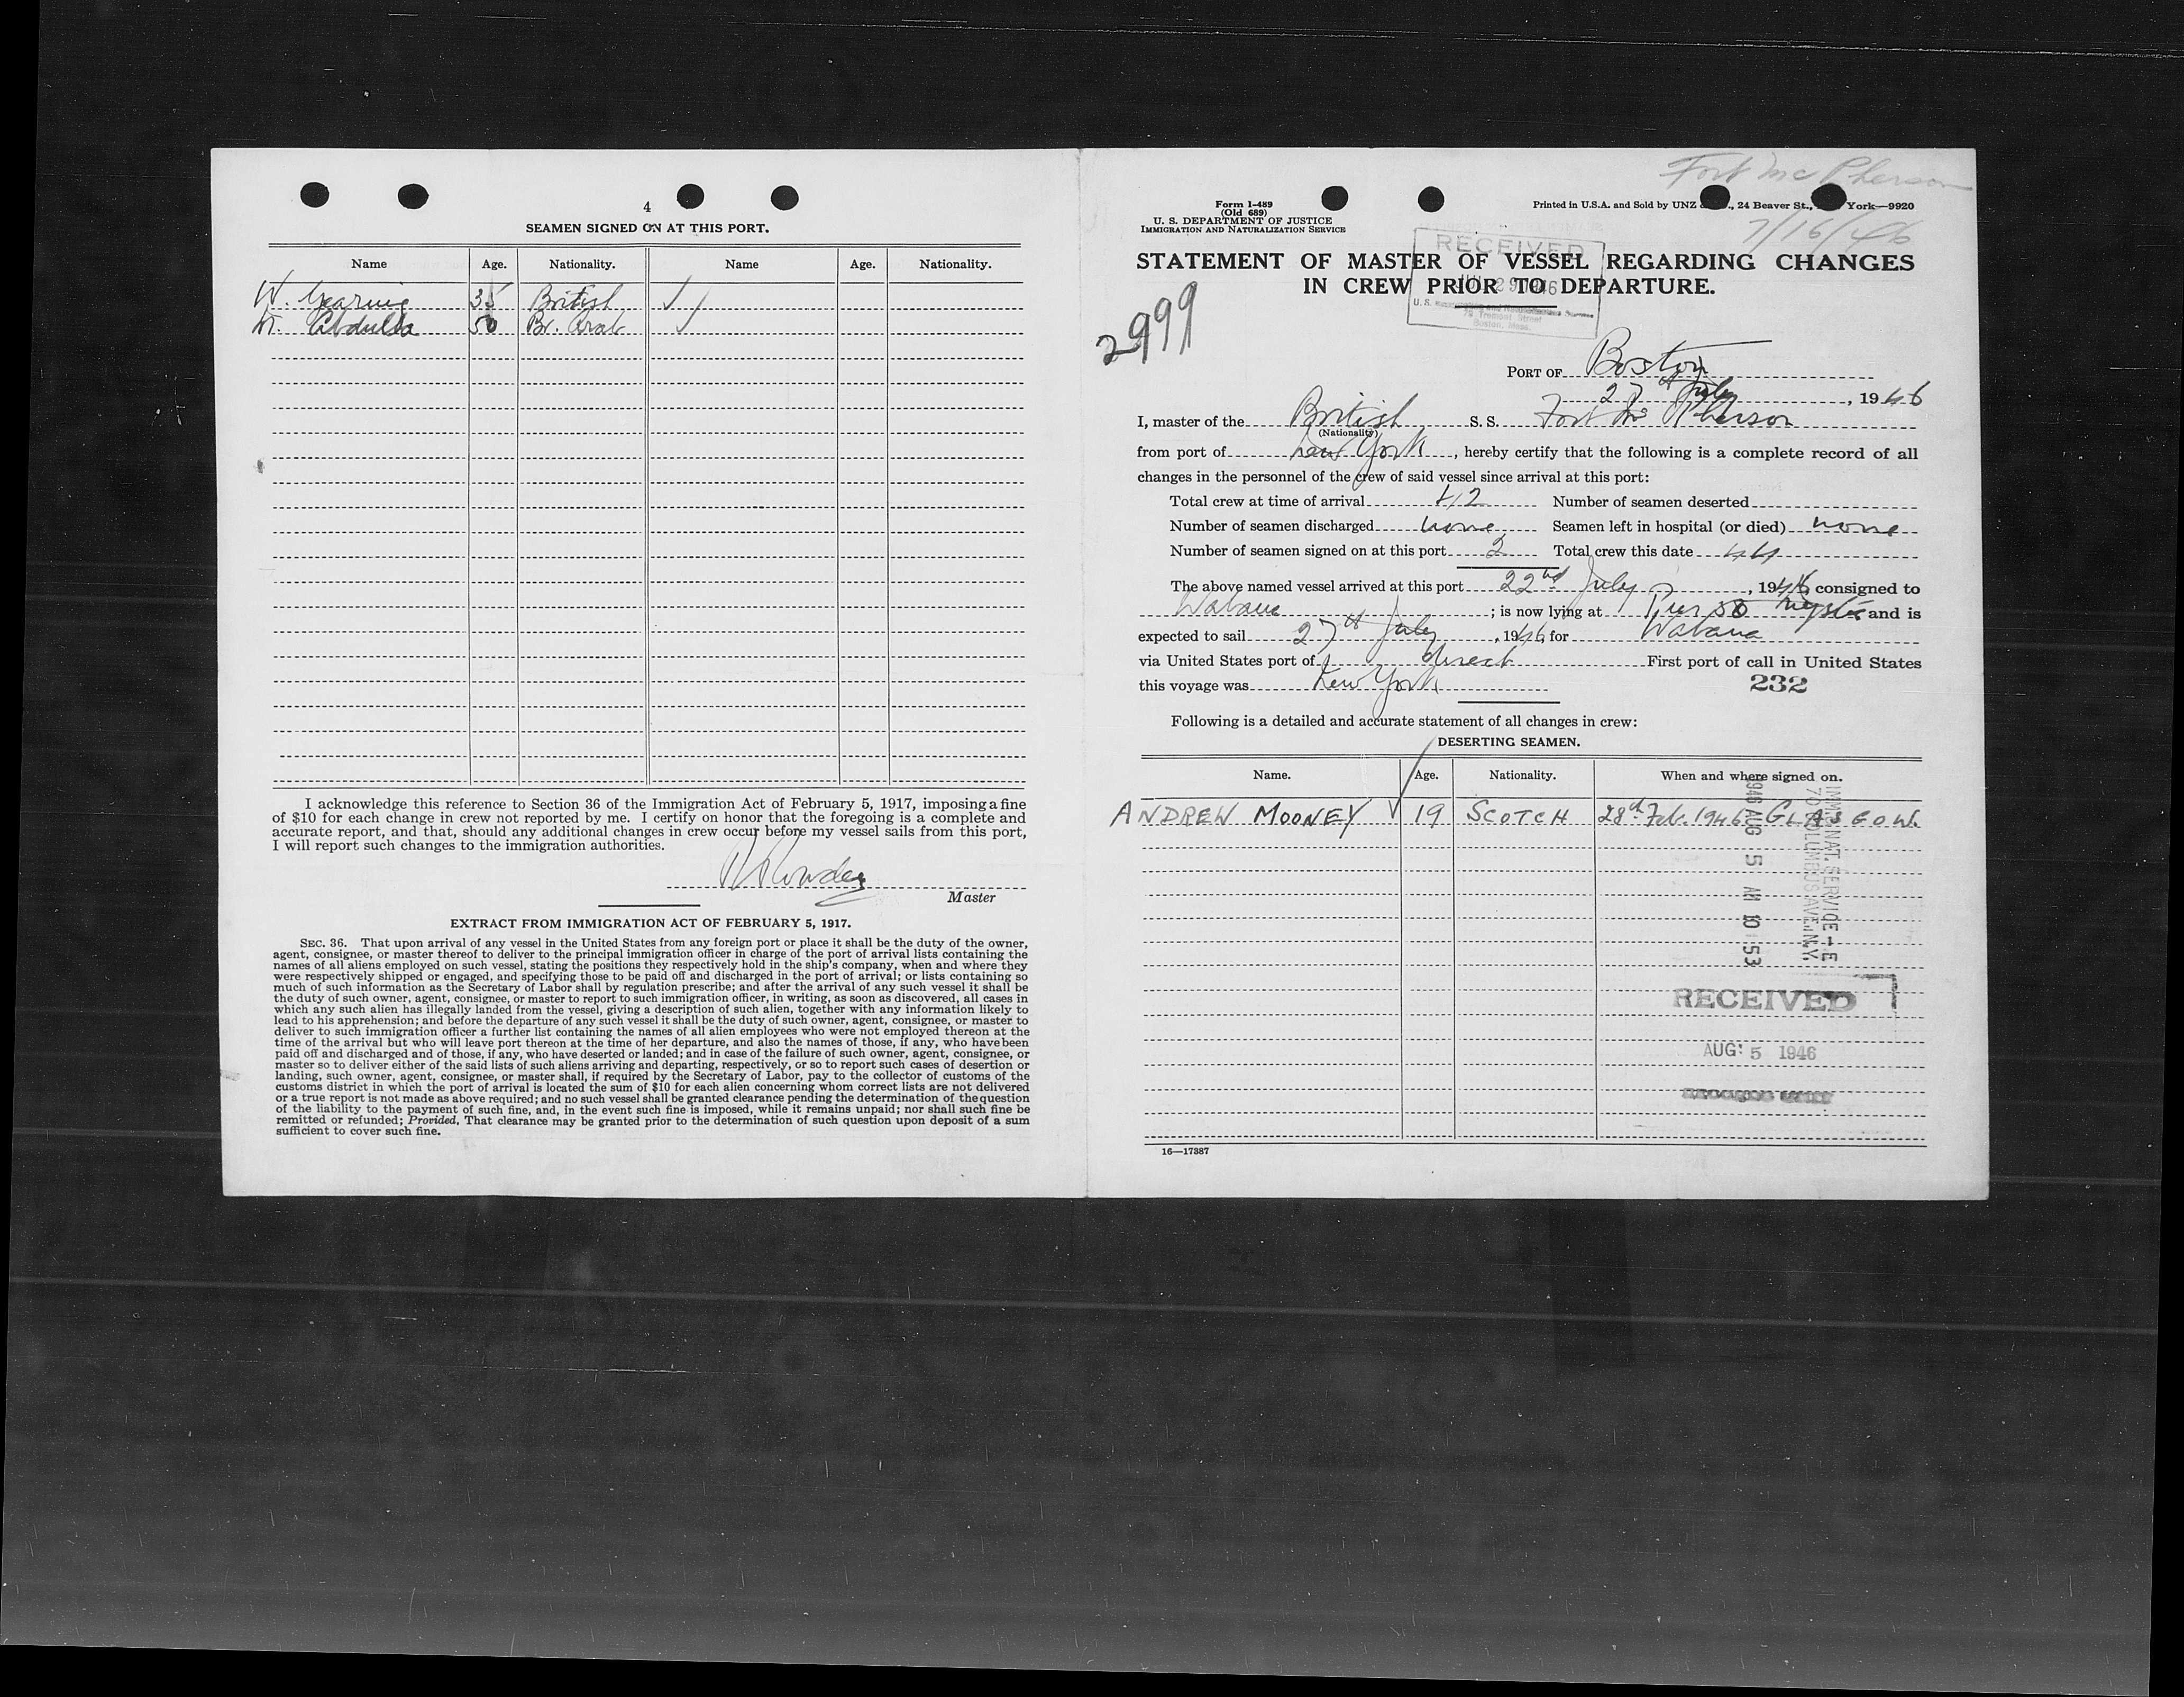 4
SEAMEN SIGNED ON AT THIS PORT.
Name Age. Nationality. Name Age. Nationality.
W. Gearing 35 British
Abdulla 50 Br. Arab
I acknowledge this reference to Section 36 of the Immigration Act of February 5, 1917, imposing a fine
of $10 for each change in crew not reported by me. I certify on honor that the foregoing is a complete and
accurate report, and that, should any additional changes in crew occur before my vessel sails from this port,
I will report such changes to the immigration authorities.
Master
EXTRACT FROM IMMIGRATION ACT OF FEBRUARY 5, 1917.
SEC. 36. That upon arrival of any vessel in the United States from any foreign port or place it shall be the duty of the owner,
agent, consignee, or master thereof to deliver to the principal immigration officer in charge of the port of arrival lists containing the
names of all aliens employed on such vessel, stating the positions they respectively hold in the ship's company, when and where they
were respectively shipped or engaged, and specifying those to be paid off and discharged in the port of arrival; or lists containing so
much of such information as the Secretary of Labor shall by regulation prescribe; and after the arrival of any such vessel it shall be
the duty of such owner, agent, consignee, or master to report to such immigration officer, in writing, as soon as discovered, all cases in
which any such alien has illegally landed from the vessel, giving a description of such alien, together with any information likely to
lead to his apprehension; and before the departure of any such vessel it shall be the duty of such owner, agent, consignee, or master to
deliver to such immigration officer a further list containing the names of all alien employees who were not employed thereon at the
time of the arrival but who will leave port thereon at the time of her departure, and also the names of those, if any, who have been
paid off and discharged and of those, if any, who have deserted or landed; and in case of the failure of such owner, agent, consignee, or
master so to deliver either of the said lists of such aliens arriving and departing, respectively, or so to report such cases of desertion or
landing, such owner, agent, consignee, or master shall, if required by the Secretary of Labor, pay to the collector of customs of the
customs district in which the port of arrival is located the sum of $10 for each alien concerning whom correct lists are not delivered
or a true report is not made as above required; and no such vessel shall be granted clearance pending the determination of the question
of the liability to the payment of such fine, and, in the event such fine is imposed, while it remains unpaid; nor shall such fine be
remitted or refunded; Provided, That clearance may be granted prior to the determination of such question upon deposit of a sum
sufficient to cover such fine.
Fort McPherson
7/16/46
Form I-489
(Old 689)
U. S. DEPARTMENT OF JUSTICE
IMMIGRATION AND NATURALIZATION SERVICE
Printed in U.S.A. and Sold by UNZ &., 24 Beaver St., York—9920
RECEIVED
STATEMENT OF MASTER OF VESSEL REGARDING CHANGES
IN CREW PRIOR TO DEPARTURE.
JUL 29 1946
Tremont Street
Boston, Mass.
2999
PORT OF Boston
27th July, 1946
I, master of the British S. S. Fort Mc Pherson
(Nationality)
from port of New York, hereby certify that the following is a complete record of all
changes in the personnel of the crew of said vessel since arrival at this port:
Total crew at time of arrival 42 Number of seamen deserted
Number of seamen discharged none Seamen left in hospital (or died) none
Number of seamen signed on at this port 2 Total crew this date 44
The above named vessel arrived at this port 22nd July, 1946, consigned to
Wabana; is now lying at Pier 50 Mystic and is
expected to sail 27th July, 1946, for Wabana
via United States port of direct First port of call in United States
this voyage was New York
232
Following is a detailed and accurate statement of all changes in crew:
DESERTING SEAMEN.
Name. Age. Nationality. When and where signed on.
ANDREW MOONEY 19 SCOTCH 28th Feb. 1946 GLASGOW.
1946 AUG 5 AM 10 53
IMM. & NAT. SERVICE
70 COLUMBUS AVE., N.Y.
RECEIVED
AUG 5 1946
16—17387